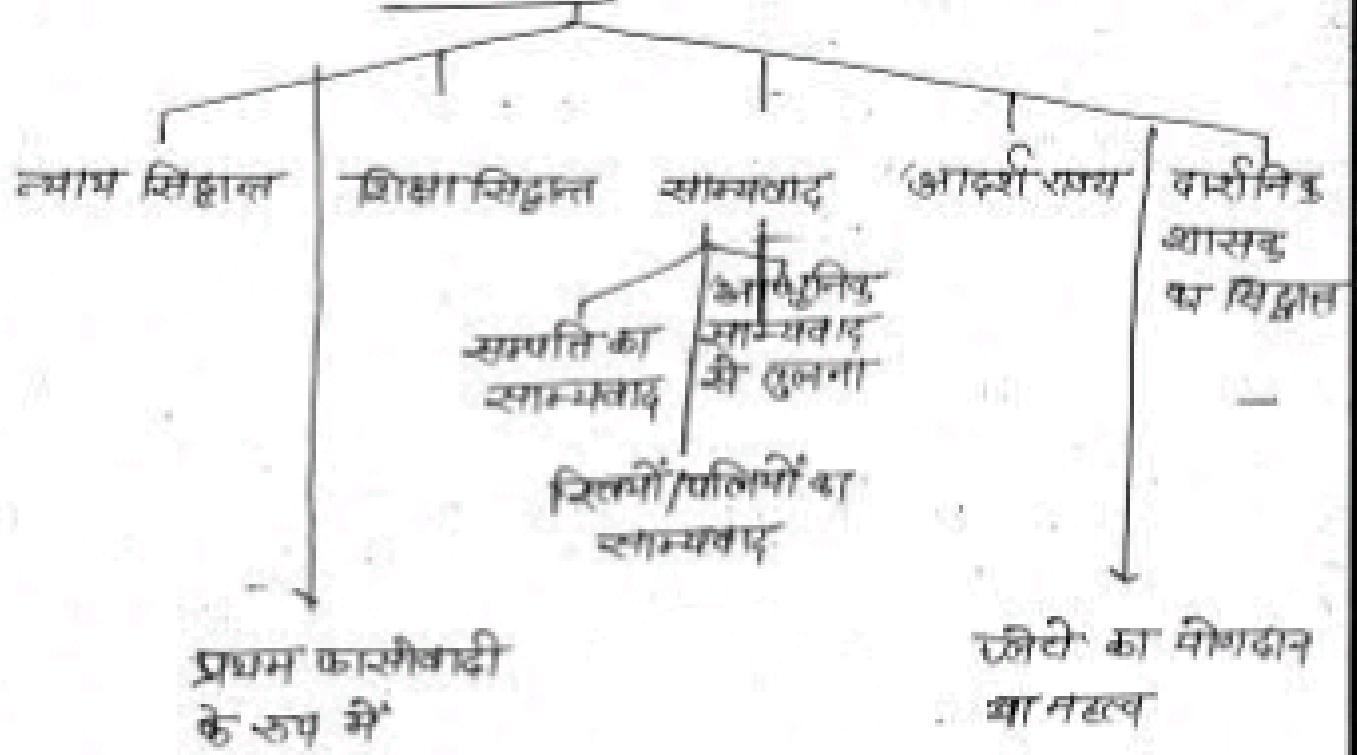 न्याय सिद्धान्त
शिक्षा सिद्धान्त
साम्यवाद
आदर्श राज्य
दार्शनिक
शासक
का सिद्धान्त
सम्पत्ति का
साम्यवाद
आधुनिक
साम्यवाद
से तुलना
स्त्रियों/पत्नियों का
साम्यवाद
प्रथम फासीवादी
के रूप में
प्लेटो का योगदान
या महत्व